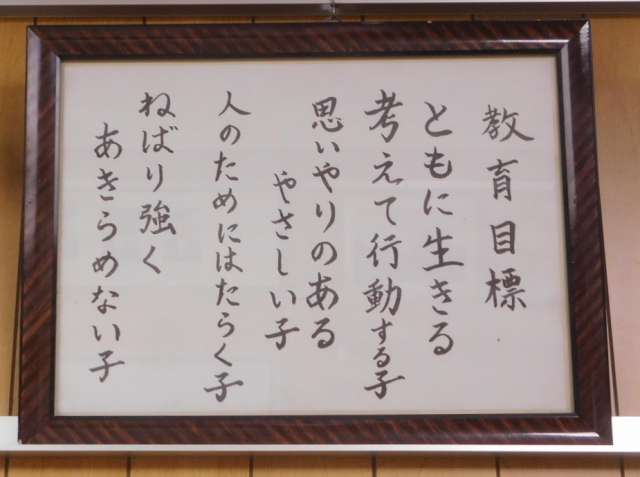 教育目標
ともに生きる
考えて行動する子
思いやりのある
やさしい子
人のためにはたらく子
ねばり強く
あきらめない子